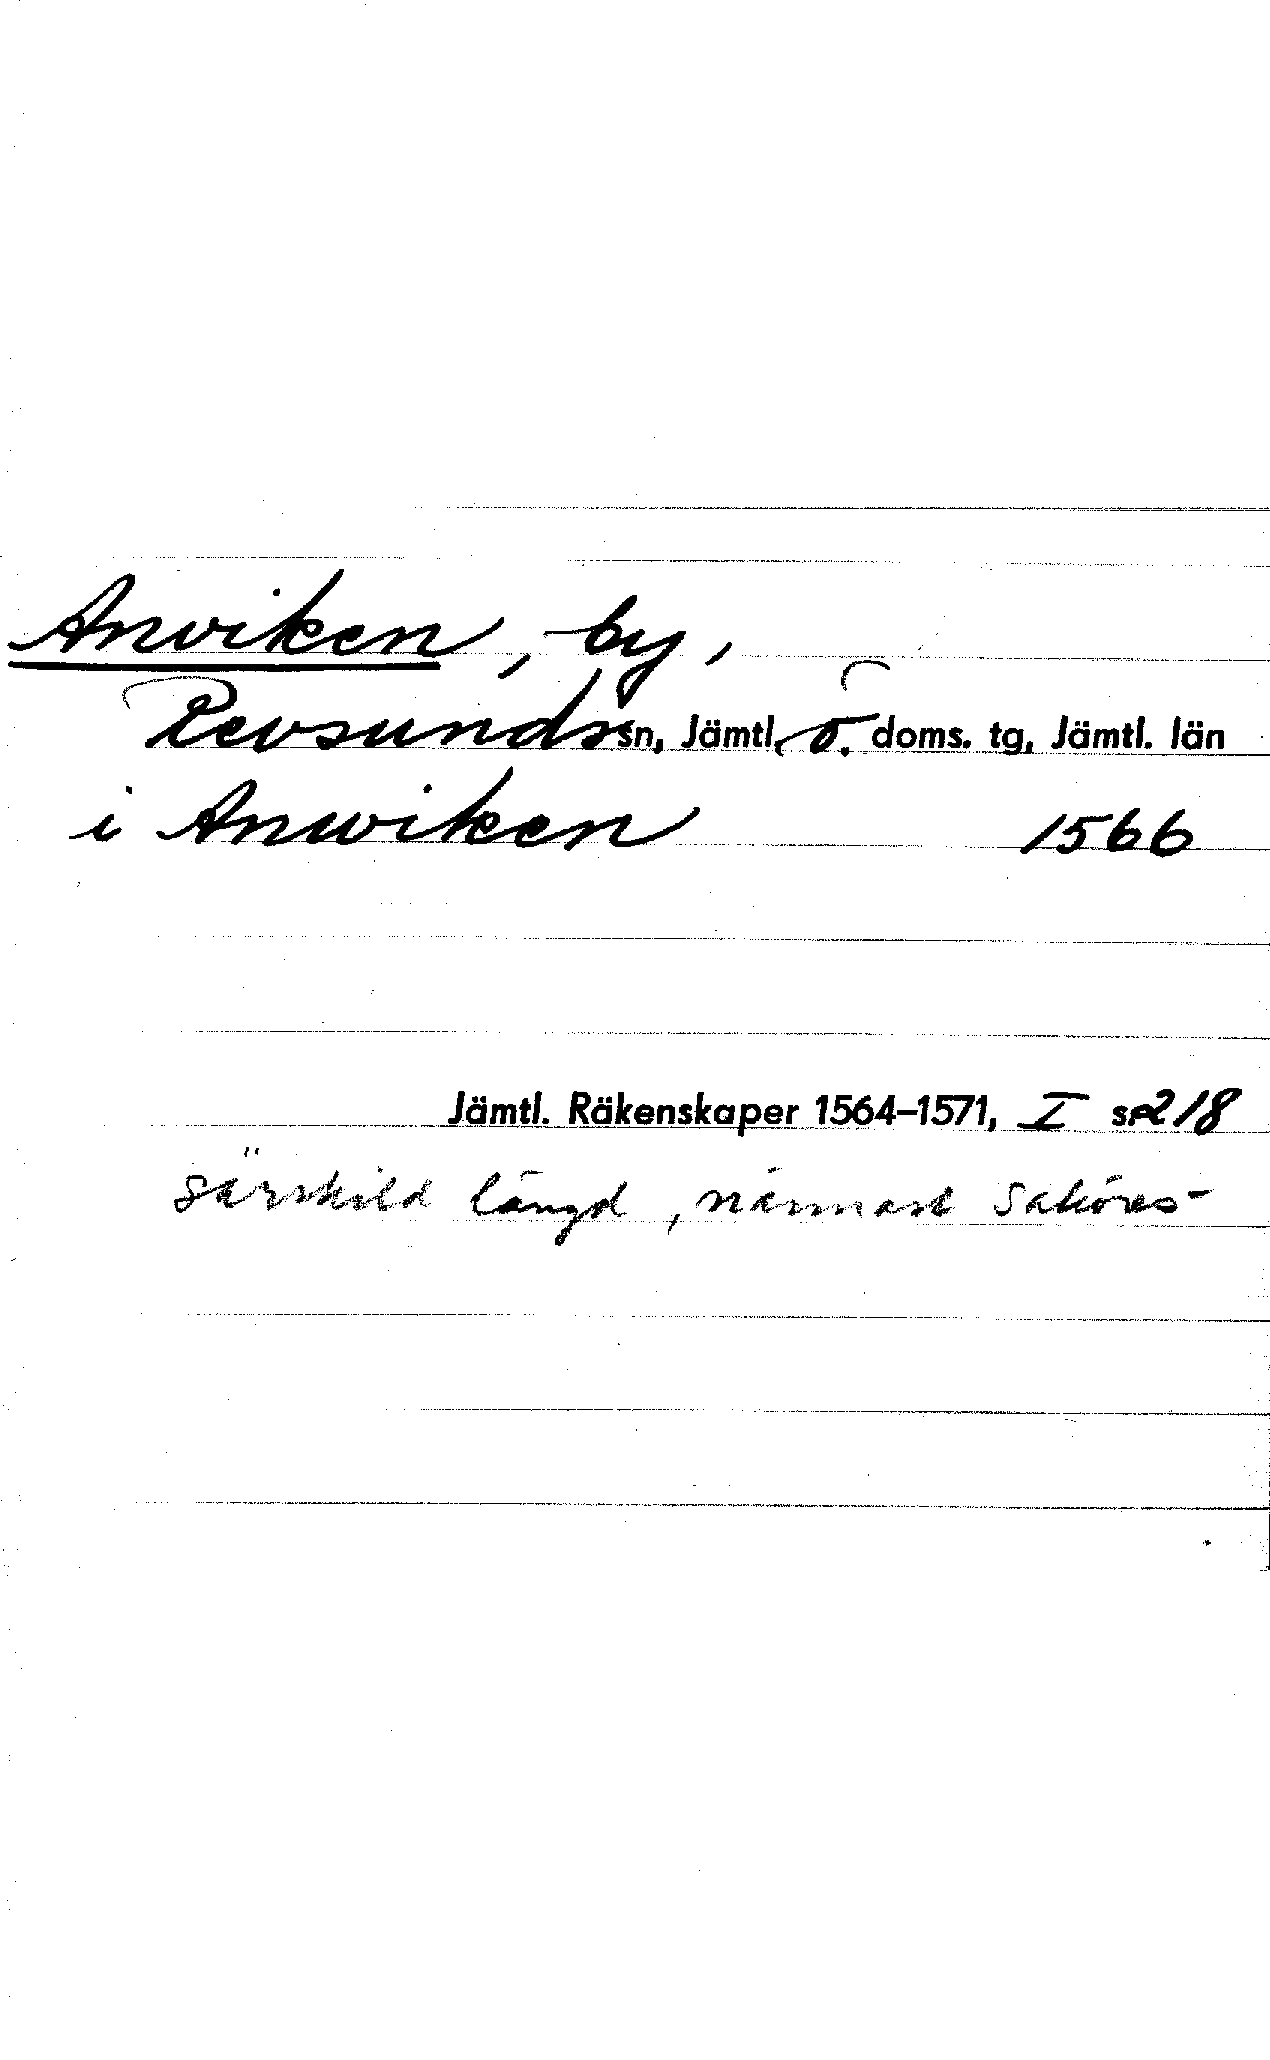 Anviken, by,
Revsunds sn, Jämtl. ö. doms. tg, Jämtl. län
i Anwiken 1566
Jämtl. Räkenskaper 1564–1571, I s. 218
särskild längd, närmast Saköres-